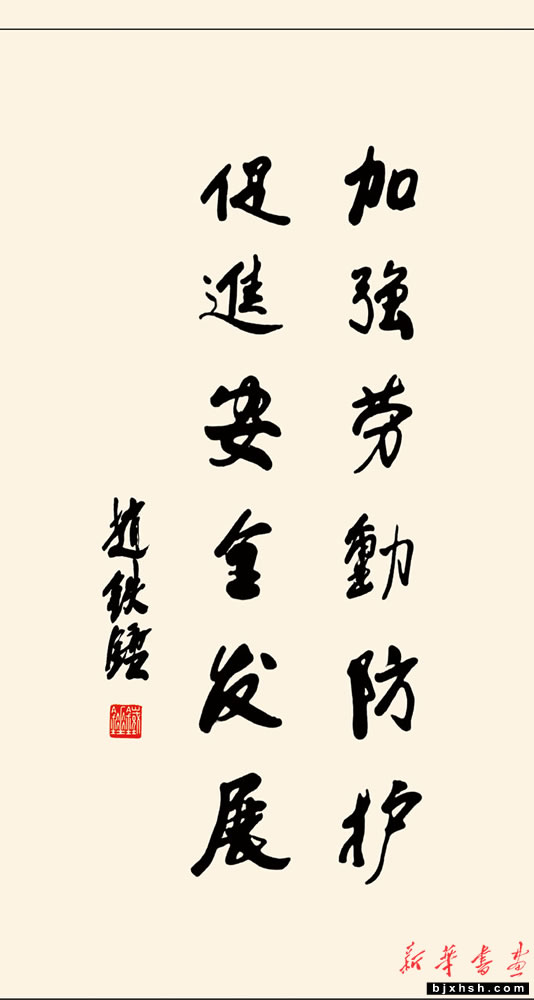 加強劳動防护
促進安全发展
趙铁錘
新華書画
bjxhsh.com